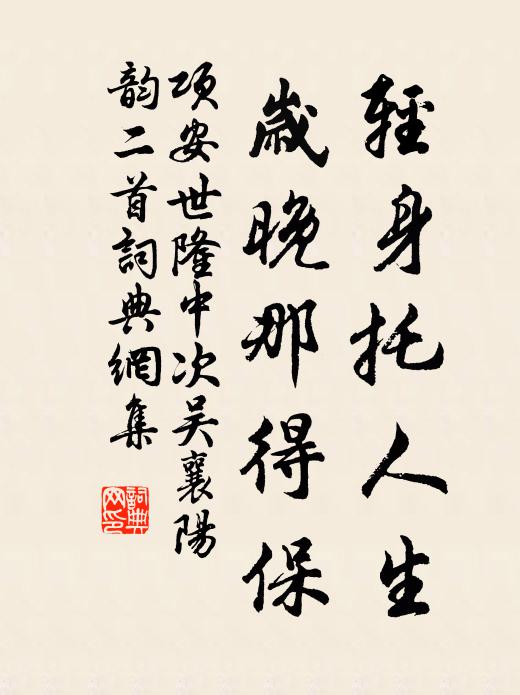 輕身托人生
歲晚那得保
項安世隆中次吴襄陽
韵二首詞典網集
詞典
网印